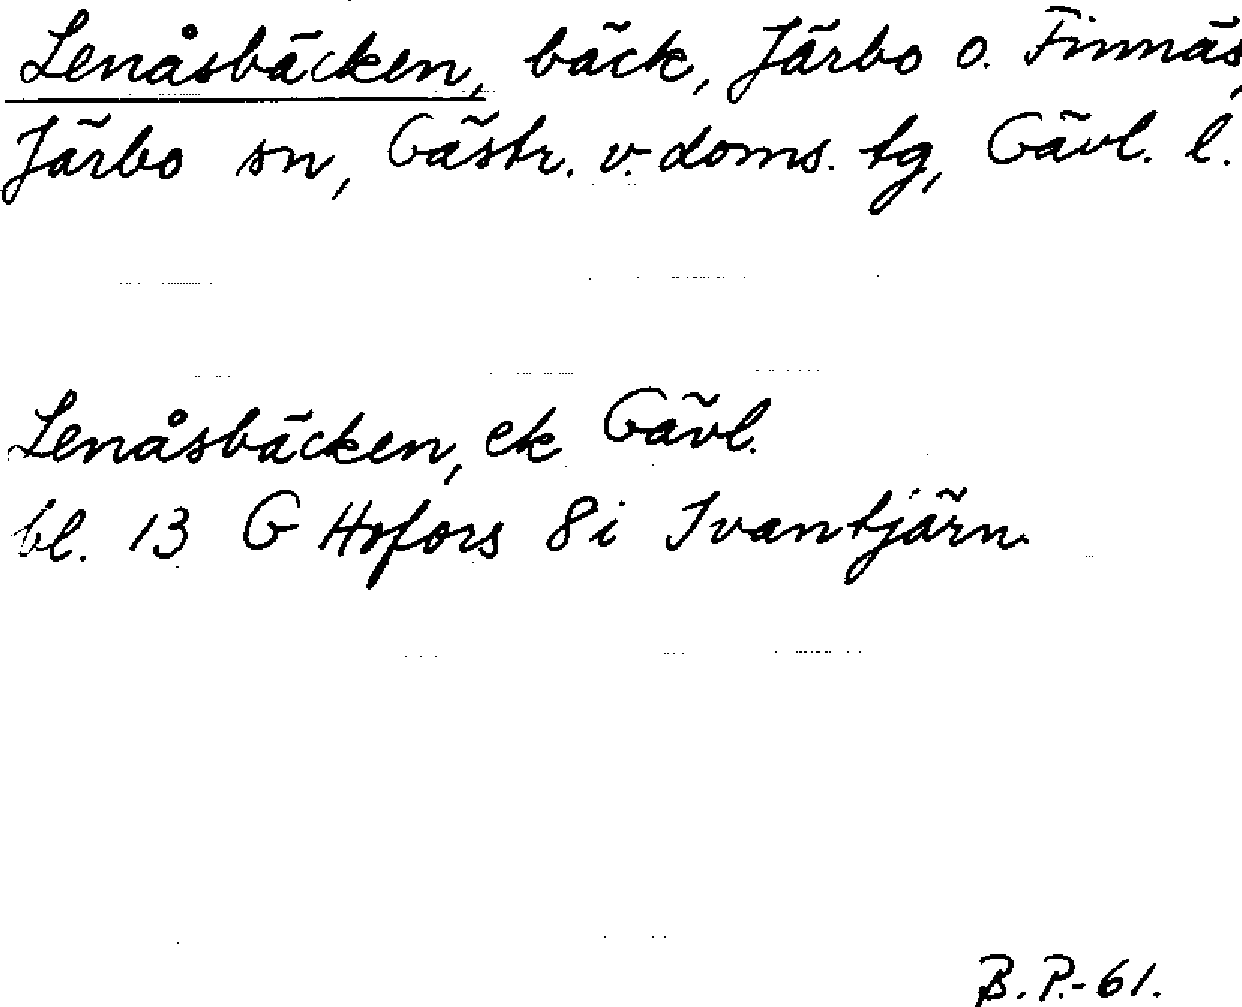 Lenåsbäcken, bäck, Järbo o. Finnäs,
Järbo sn, Gästr. v. doms. tg, Gävl. l.
Lenåsbäcken, ek Gävl.
bl. 13 G Hofors 8i Ivantjärn.
B.P.-61.